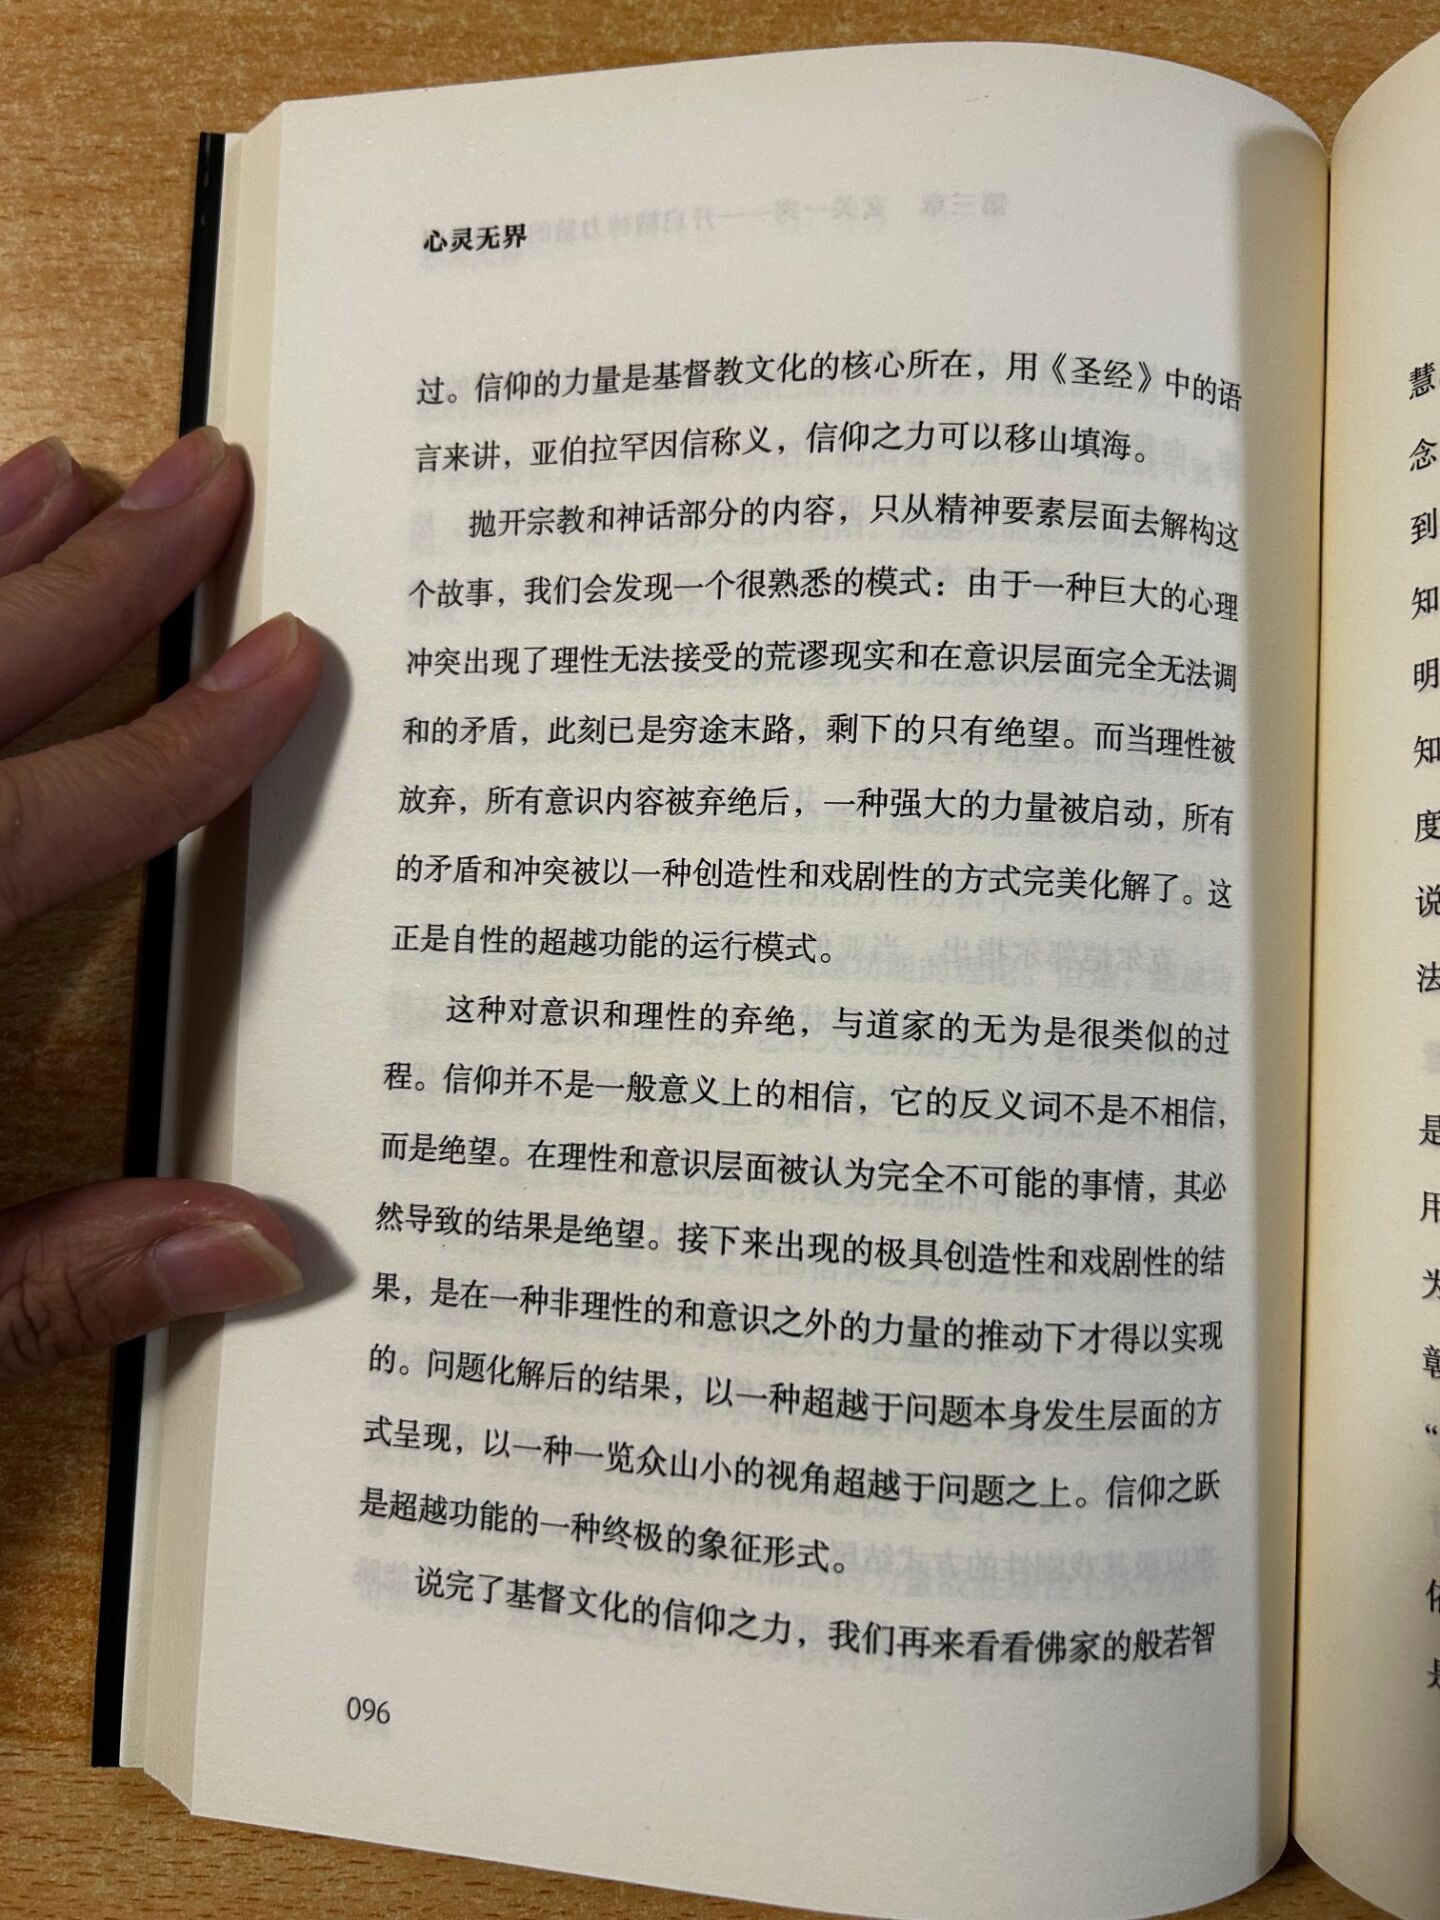 心灵无界
过。信仰的力量是基督教文化的核心所在，用《圣经》中的语
言来讲，亚伯拉罕因信称义，信仰之力可以移山填海。
抛开宗教和神话部分的内容，只从精神要素层面去解构这
个故事，我们会发现一个很熟悉的模式：由于一种巨大的心理
冲突出现了理性无法接受的荒谬现实和在意识层面完全无法调
和的矛盾，此刻已是穷途末路，剩下的只有绝望。而当理性被
放弃，所有意识内容被弃绝后，一种强大的力量被启动，所有
的矛盾和冲突被以一种创造性和戏剧性的方式完美化解了。这
正是自性的超越功能的运行模式。
这种对意识和理性的弃绝，与道家的无为是很类似的过
程。信仰并不是一般意义上的相信，它的反义词不是不相信，
而是绝望。在理性和意识层面被认为完全不可能的事情，其必
然导致的结果是绝望。接下来出现的极具创造性和戏剧性的结
果，是在一种非理性的和意识之外的力量的推动下才得以实现
的。问题化解后的结果，以一种超越于问题本身发生层面的方
式呈现，以一种一览众山小的视角超越于问题之上。信仰之跃
是超越功能的一种终极的象征形式。
说完了基督文化的信仰之力，我们再来看看佛家的般若智
096
慧
念
到
知
明
知
度
说
法
是
用
为
“